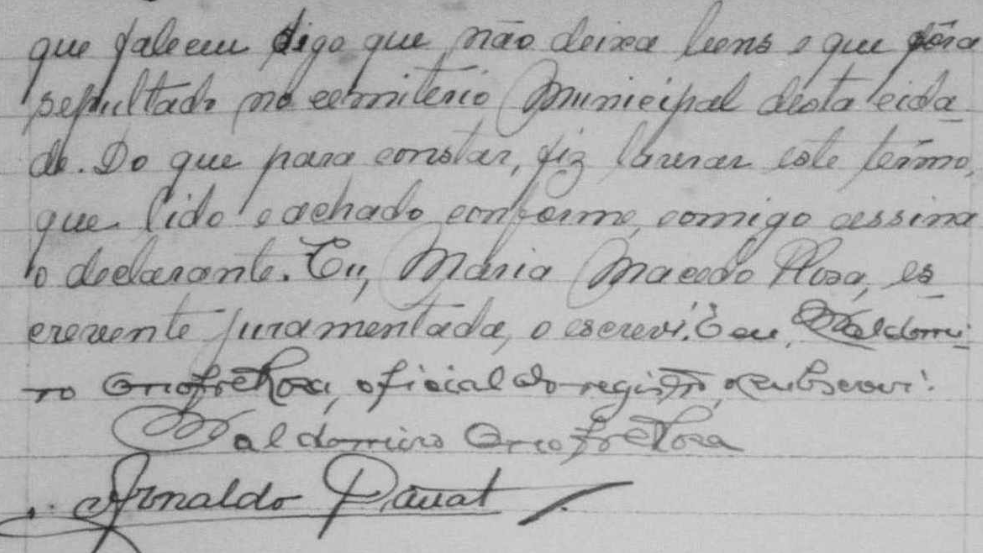 que faleceu digo que não deixa bens e que fôra
sepultado no cemitério Municipal desta cida
de. Do que para constar, fiz lavrar este têrmo,
que lido e achado conforme, comigo assina
o declarante. Eu, Maria Macedo Rosa, es
crevente juramentada, o escrevi. E eu, Waldomi
ro Onofre Rosa, oficial do registro, o subscrevi.
Waldomiro Onofre Rosa
Arnaldo